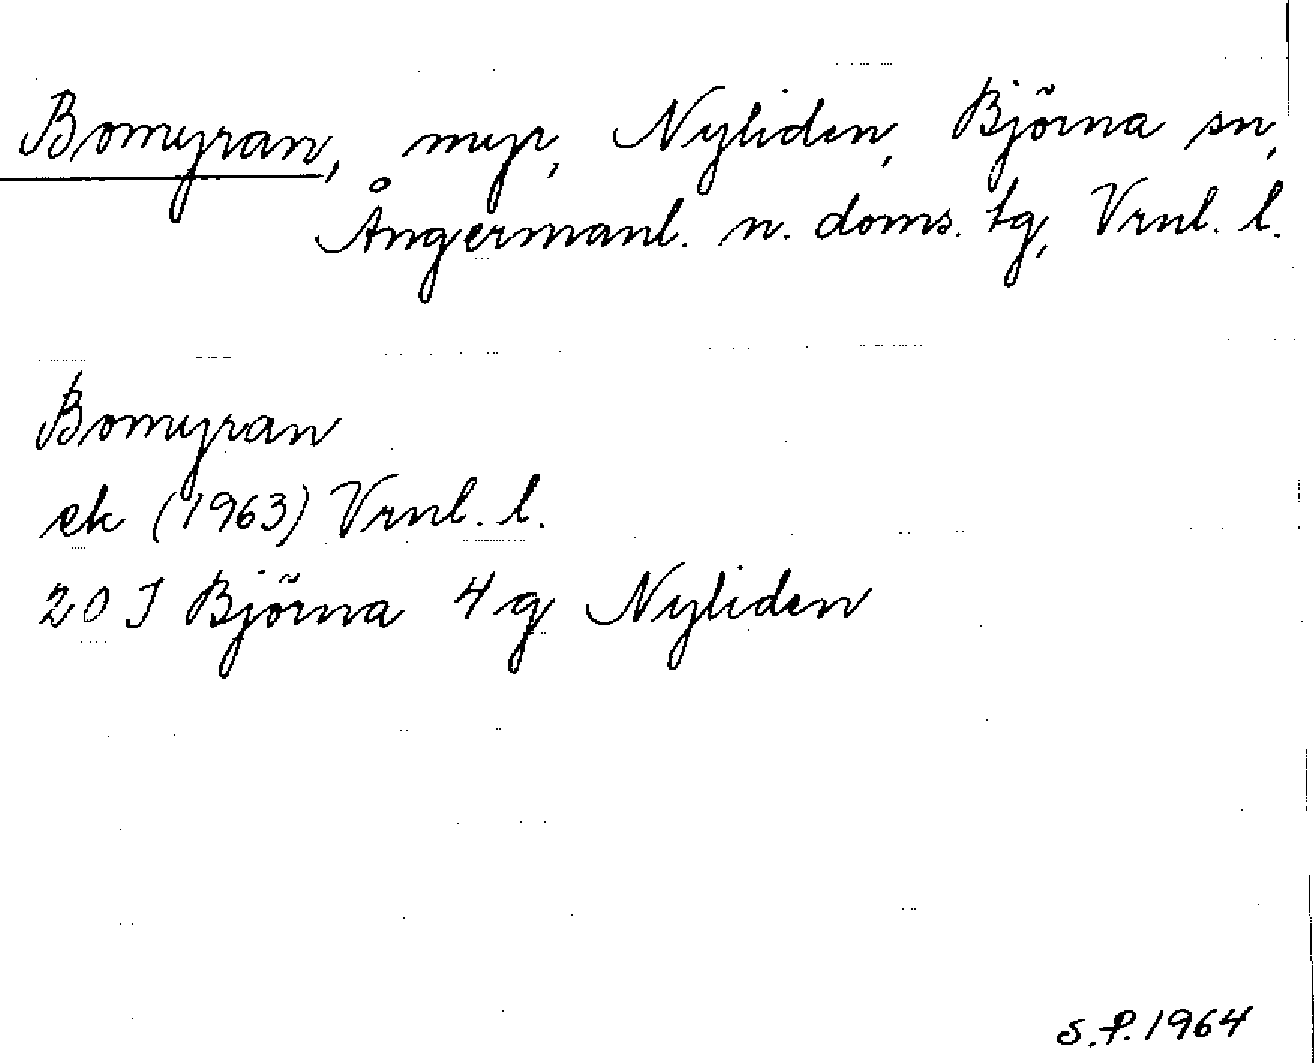 Bomyran, myr, Nyliden, Björna sn,
Ångermanl. n. doms. tg, Vrnl. l.
Bomyran
ek (1963) Vrnl. l.
20 J Björna 4g Nyliden
S.P. 1964